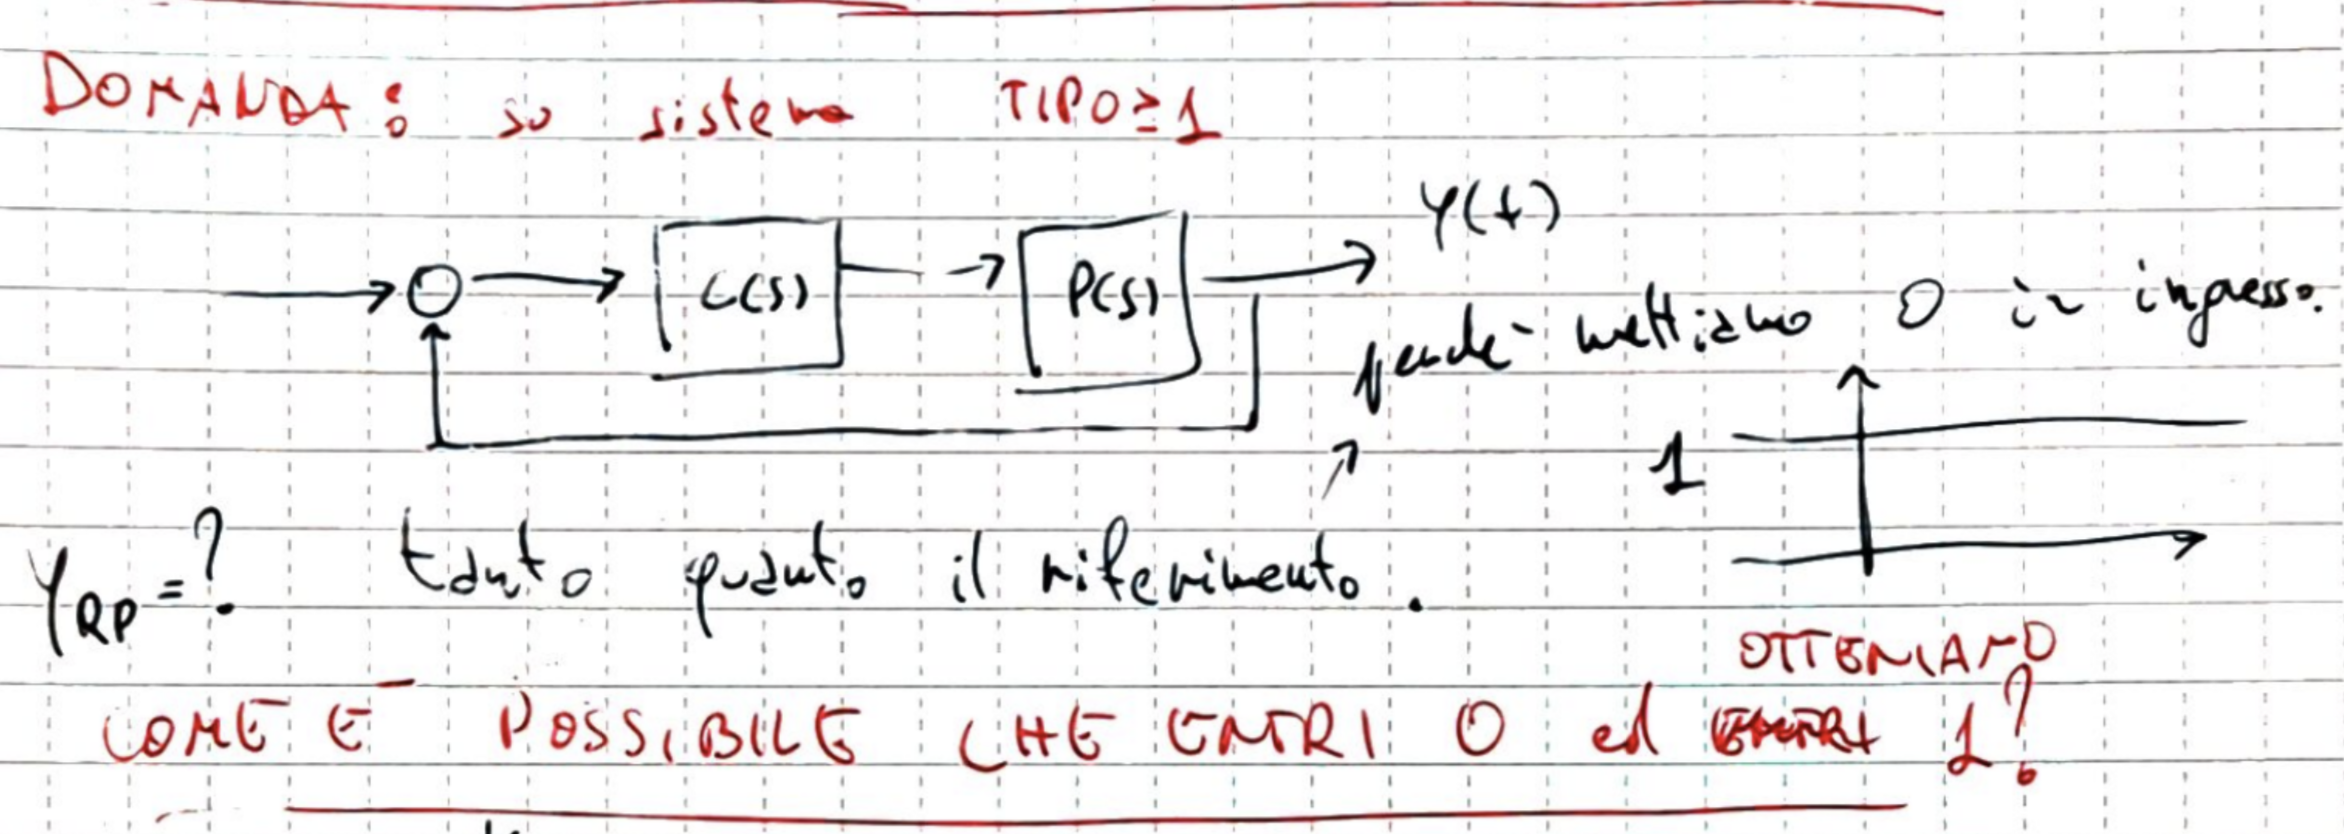 DOMANDA: su sistema TIPO ≥ 1
y(t)
C(s) P(s)
perché mettiamo 0 in ingresso.
1
y_RP = ? tanto quanto il riferimento.
OTTENIAMO
COME E' POSSIBILE CHE ENTRI 0 ed 1?